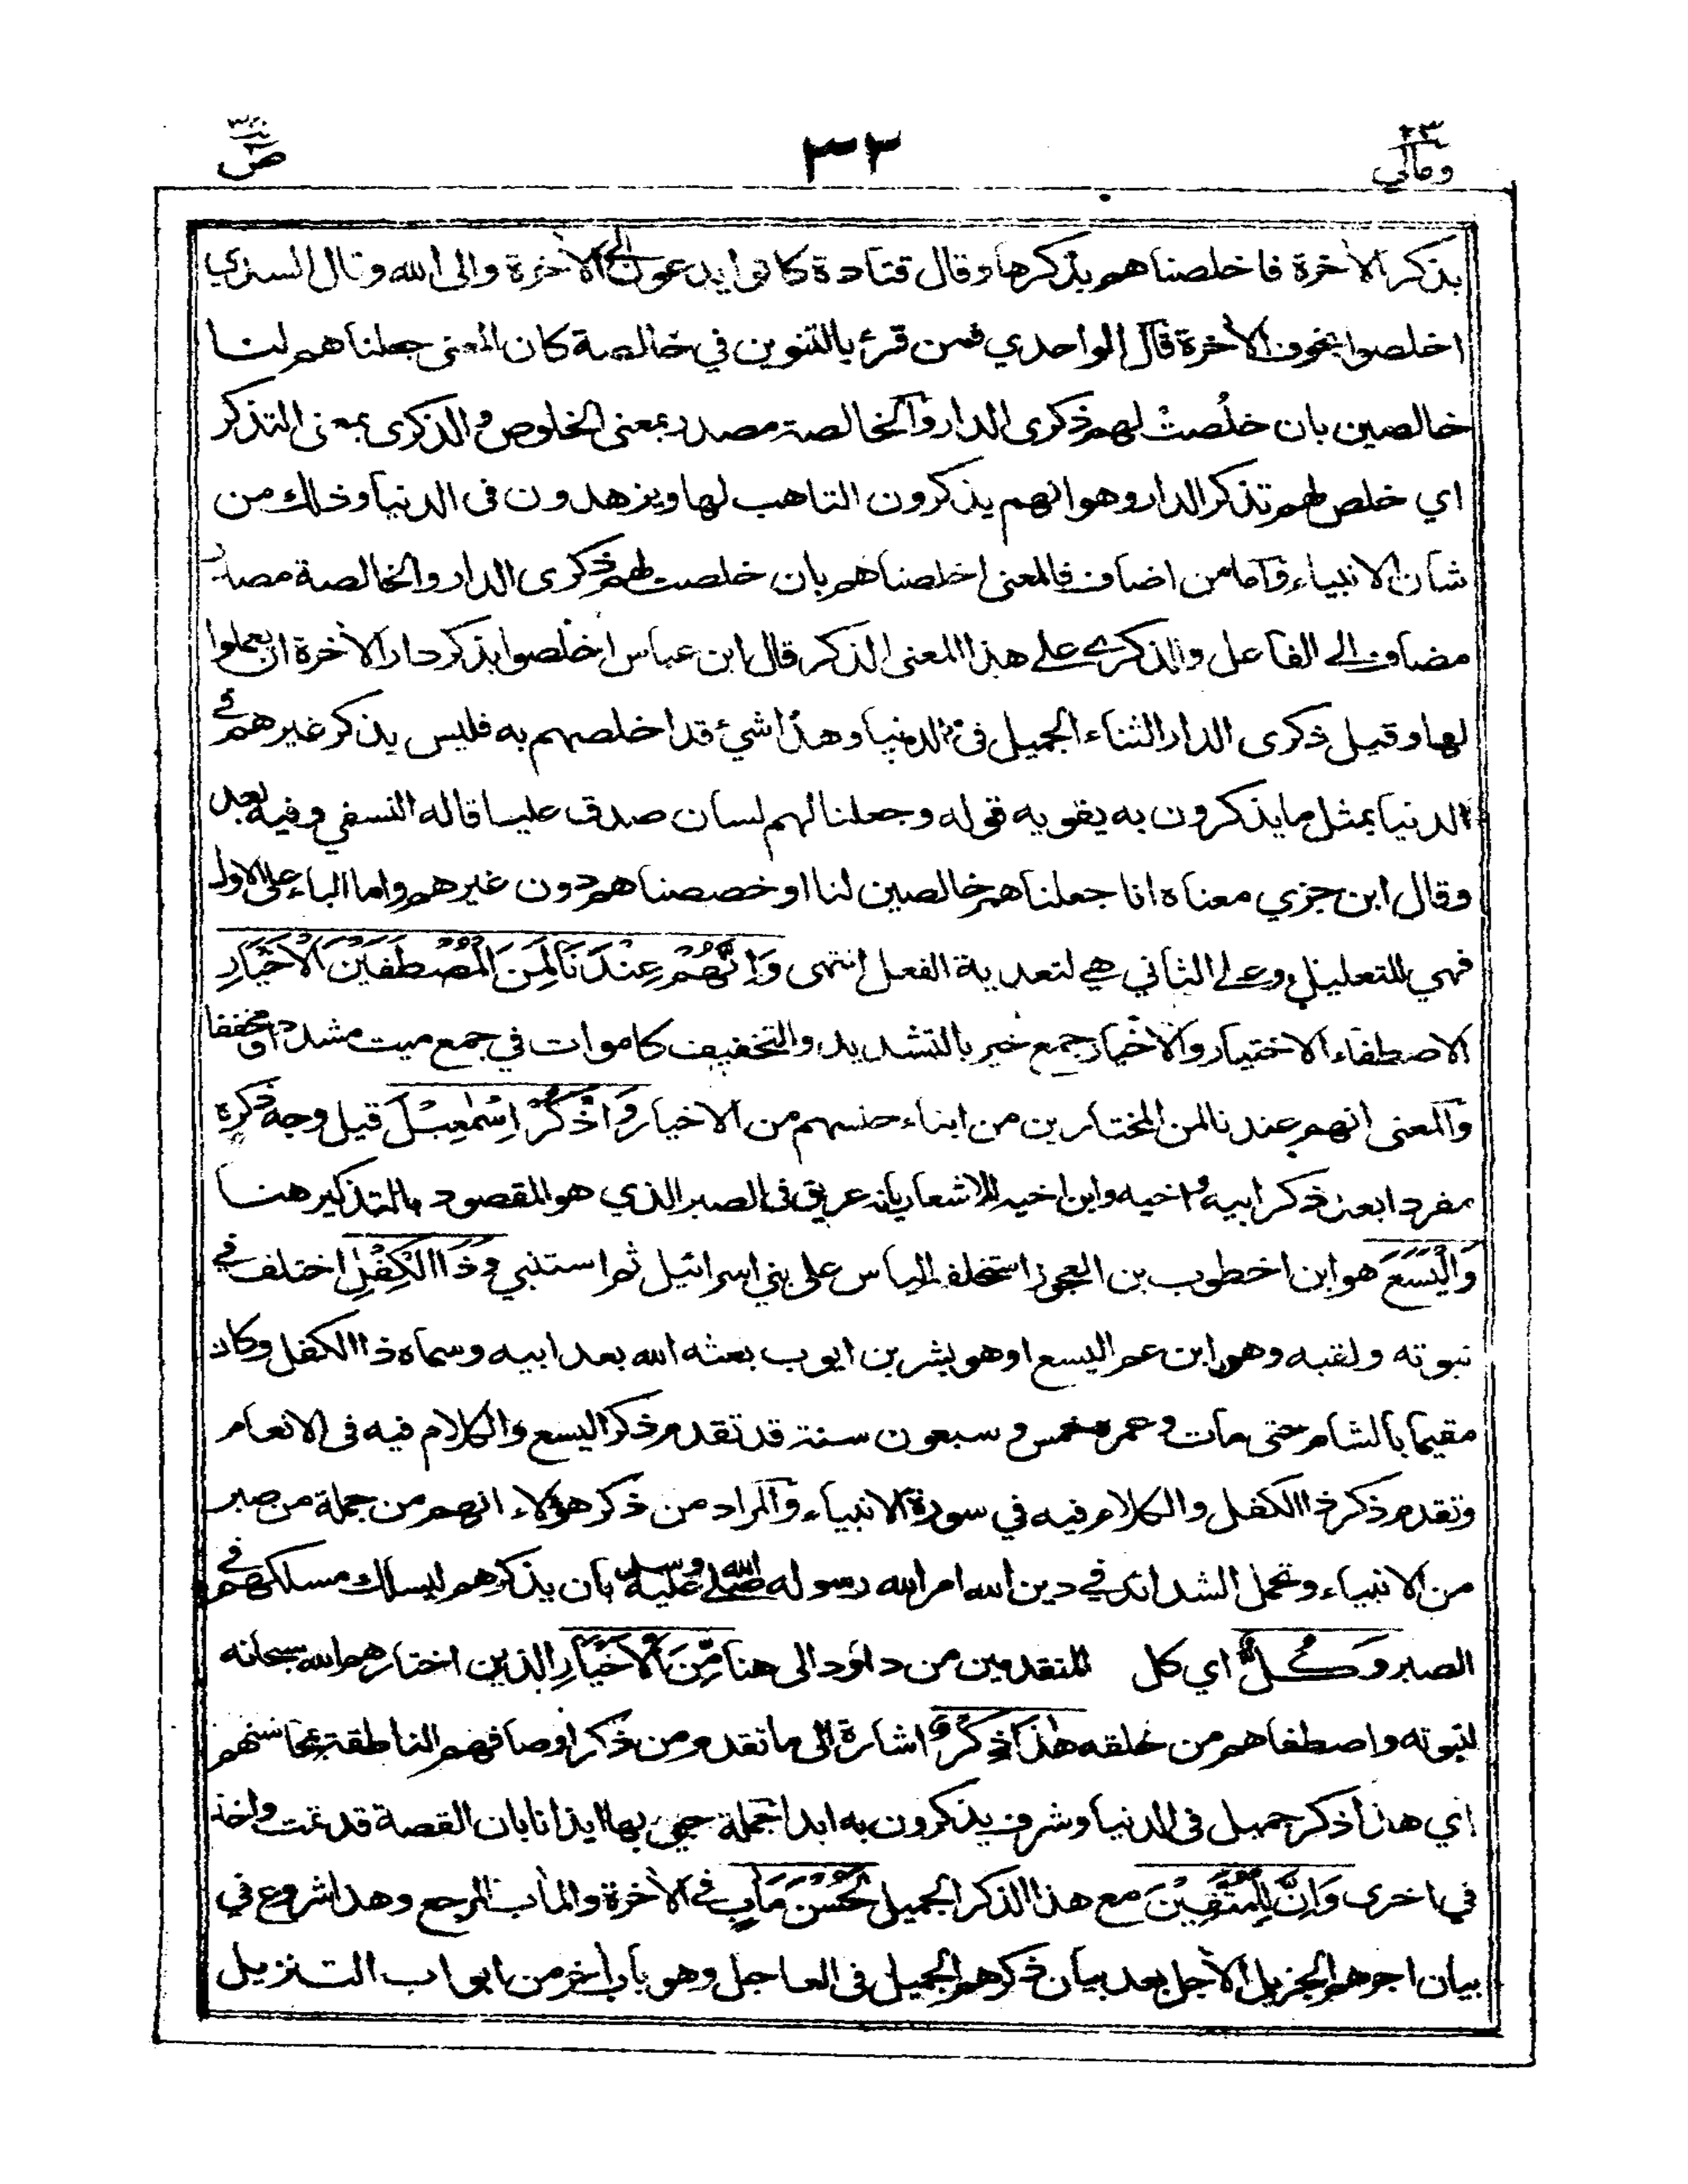 ص
٣٢
٢٣
ومالي
بذكر الآخرة فاخلصناهم بذكرها وقال قتادة كانوا يدعون الى الآخرة والى الله وقال السدي
اخلصوا بخوف الآخرة قال الواحدي فمن قرئ بالتنوين في خالصة كان المعنى جعلناهم لنا
خالصين بان خلُصتْ لهم ذكرى الدار والخالصة مصدر بمعنى الخلوص والذكرى بمعنى التذكر
اي خلص لهم تذكر الدار وهو انهم يذكرون التاهب لها ويزهدون فى الدنيا وذلك من
شان الانبياء واما من اضاف فالمعنى اخلصناهم بان خلصت لهم ذكرى الدار والخالصة مصدر
مضاف الى الفاعل والذكرى على هذا المعنى الذكر قال ابن عباس اخلصوا بذكر دار الآخرة ان يعملوا
لها وقيل ذكرى الدار الثناء الجميل فى الدنيا وهذا شئ قد اخلصهم به فليس يذكر غيرهم في
الدنيا بمثل ما يذكرون به يقويه قوله وجعلنا لهم لسان صدق عليا قاله النسفي وفيه بعد
وقال ابن جزي معناه انا جعلناهم خالصين لنا او خصصناهم دون غيرهم واما الباء على الاول
فهي للتعليل وعلى الثاني هي لتعدية الفعل انتهى وَاِنَّهُمْ عِنْدَنَا لَمِنَ الْمُصْطَفَيْنَ الْاَخْيَارِ
الاصطفاء الاختيار والاخيار جمع خير بالتشديد والتخفيف كاموات في جمع ميت مشددا ومخففا
والمعنى انهم عندنا لمن المختارين من ابناء جنسهم من الاخيار وَاذْكُرْ اِسْمٰعِيْلَ قيل وجه ذكره
مفردا بعد ذكر ابيه واخيه وابن اخيه للاشعار بانه عريق فى الصبر الذي هو المقصود بالتذكير هنا
وَالْيَسَعَ هو ابن اخطوب بن العجوز استخلفه الياس على بني اسرائيل ثم استنبي وَذَا الْكِفْلِ اختلف في
نبوته ولقبه وهو ابن عم اليسع او هو بشر بن ايوب بعثه الله بعد ابيه وسماه ذا الكفل وكان
مقيما بالشام حتى مات وعمره خمس وسبعون سنة قد تقدم ذكر اليسع والكلام فيه فى الانعام
وتقدم ذكر ذا الكفل والكلام فيه في سورة الانبياء والمراد من ذكر هؤلاء انهم من جملة من صبر
من الانبياء وتحمل الشدائد في دين الله امر الله رسوله صلى الله عليه وسلم بان يذكرهم ليسلك مسلكهم في
الصبر وَكُلٌّ اي كل المتقدمين من داؤد الى هنا مِّنَ الْاَخْيَارِ الذين اختارهم الله سبحانه
لنبوته واصطفاهم من خلقه هٰذَا ذِكْرٌ اشارة الى ما تقدم من ذكر اوصافهم الناطقة بمحاسنهم
اي هذا ذكر جميل فى الدنيا وشرف يذكرون به ابدا جملة جيئ بها ايذانا بان القصة قد تمت واخذ
في اخرى وَاِنَّ لِلْمُتَّقِيْنَ مع هذا الذكر الجميل لَحُسْنَ مَاٰبٍ في الآخرة والمآب المرجع وهذا شروع في
بيان اجرهم الجزيل الآجل بعد بيان ذكرهم الجميل فى العاجل وهو باب آخر من ابواب التنزيل